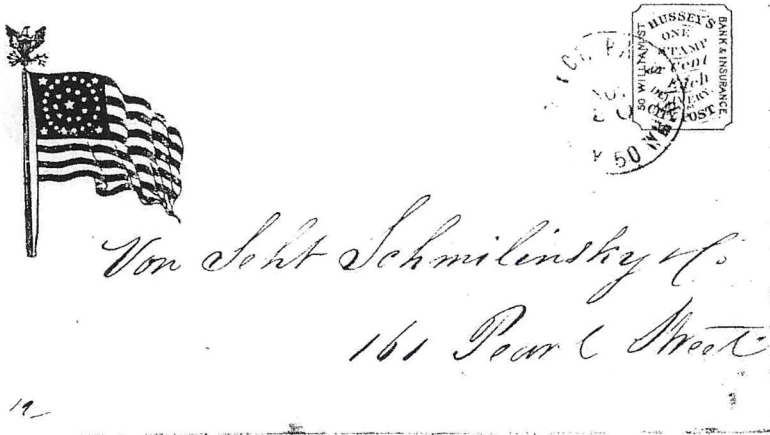 HUSSEY'S
ONE
STAMP
Cent
Each
DELIVERY.
CITY POST
50 WILLIAM ST
BANK & INSURANCE.
50 W
Von Seht Schmilinsky & Co.
161 Pearl Street